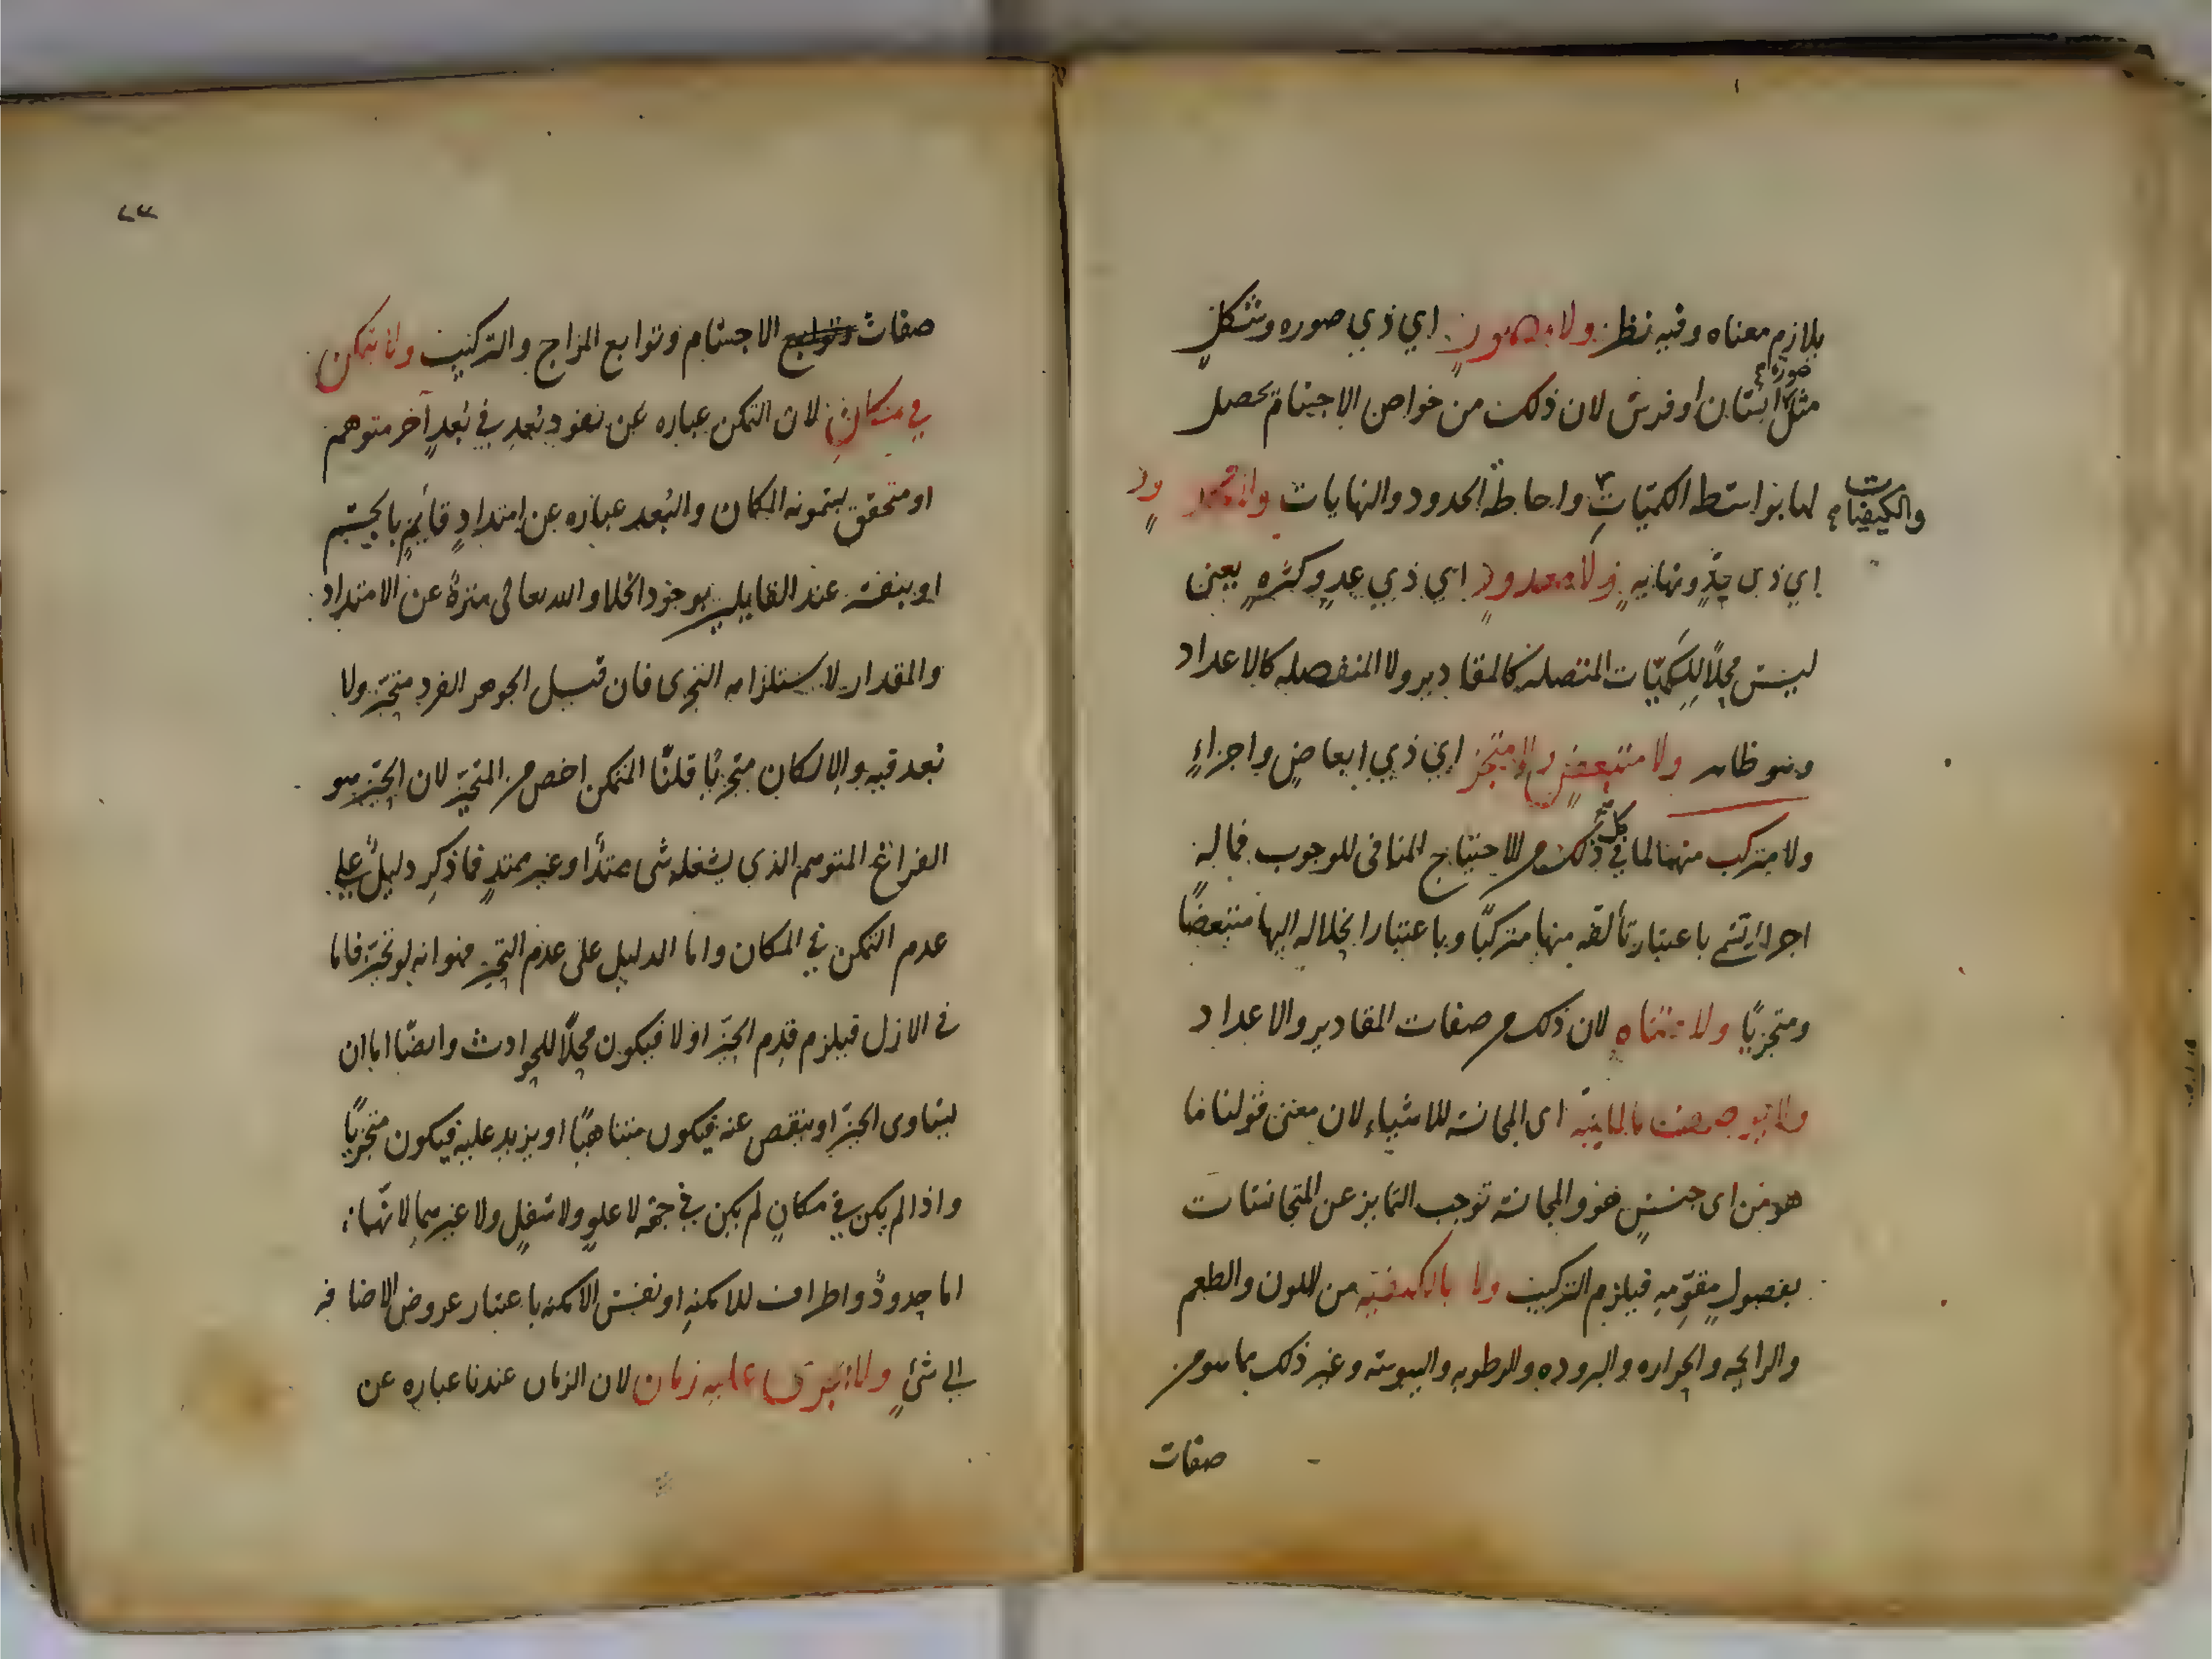 بلازم معناه وفيه نظر ولا مصور اي ذي صوره وشكل
صورة
مثل انسان او فرس لان ذلك من خواص الاجسام تحصل
والكيفيات
لها بواسطه الكميات واحاطة الحدود والنهايات ولا محدود
اي ذي حد ونهايه ولا معدود اي ذي عدد وكثره يعني
ليس محلا للكميات المتصله كالمقادير ولا المنفصله كالاعداد
وهو ظاهر ولا متبعض ولا متجز اي ذي ابعاض واجزاء
ولا متركب منهما لما في كل ذلك من الاحتياج المنافى للوجوب فماله
اجزاء تسمى باعتبار تألفه منها متركبا وباعتبار انحلاله اليها متبعضا
ومتجزيا ولا متناه لان ذلك من صفات المقادير والاعداد
ولا يوصف بالماهية اى المجانسه للاشياء لان معنى قولنا ما
هو من اى جنس هو والمجانسه توجب التمايز عن المتجانسات
بفصول مقومه فيلزم التركيب ولا بالكيفيه من اللون والطعم
والرايحه والحراره والبروده والرطوبه واليبوسه وغير ذلك مما هو من
صفات
٢٣
صفات وتوابع الاجسام وتوابع المزاج والتركيب ولا يتمكن
في مكان لان التمكن عباره عن نفوذ بُعد في بُعد آخر متوهم
او متحقق يسمونه المكان والبُعد عباره عن امتداد قائم بالجسم
او بنفسه عند القايلين بوجود الخلا والله تعالى منزه عن الامتداد
والمقدار لاستلزامه التجزى فان قيل الجوهر الفرد متحيز ولا
بعد فيه والا لكان متجزيا قلنا المتمكن اخص من المتحيز لان الحيز هو
الفراغ المتوهم الذي يشغله شى ممتدا او غير ممتد فما ذكر دليل على
عدم التمكن في المكان واما الدليل على عدم التحيز فهو انه لو تحيز فاما
فى الازل فيلزم قدم الحيز او لا فيكون محلا للحوادث وايضا اما ان
يساوى الحيز او ينقص عنه فيكون متناهيا او يزيد عليه فيكون متجزيا
واذا لم يكن في مكان لم يكن في جهه لا علو ولا سفل ولا غيرهما لانها
اما حدود واطراف للامكنه او نفس الامكنه باعتبار عروض الاضافه
الى شئ ولا يجرى عليه زمان لان الزمان عندنا عباره عن